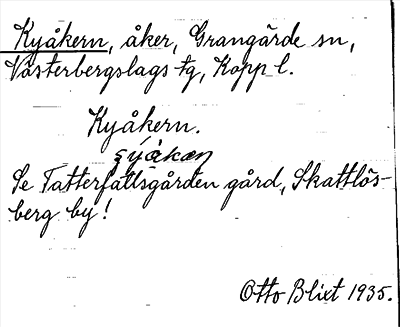 Kyåkern, åker, Grangärde sn,
Västerbergslags tg, Kopp l.
Kyåkern.
Se Tatterfallsgården gård, Skattlös-
berg by!
Otto Blixt 1935.